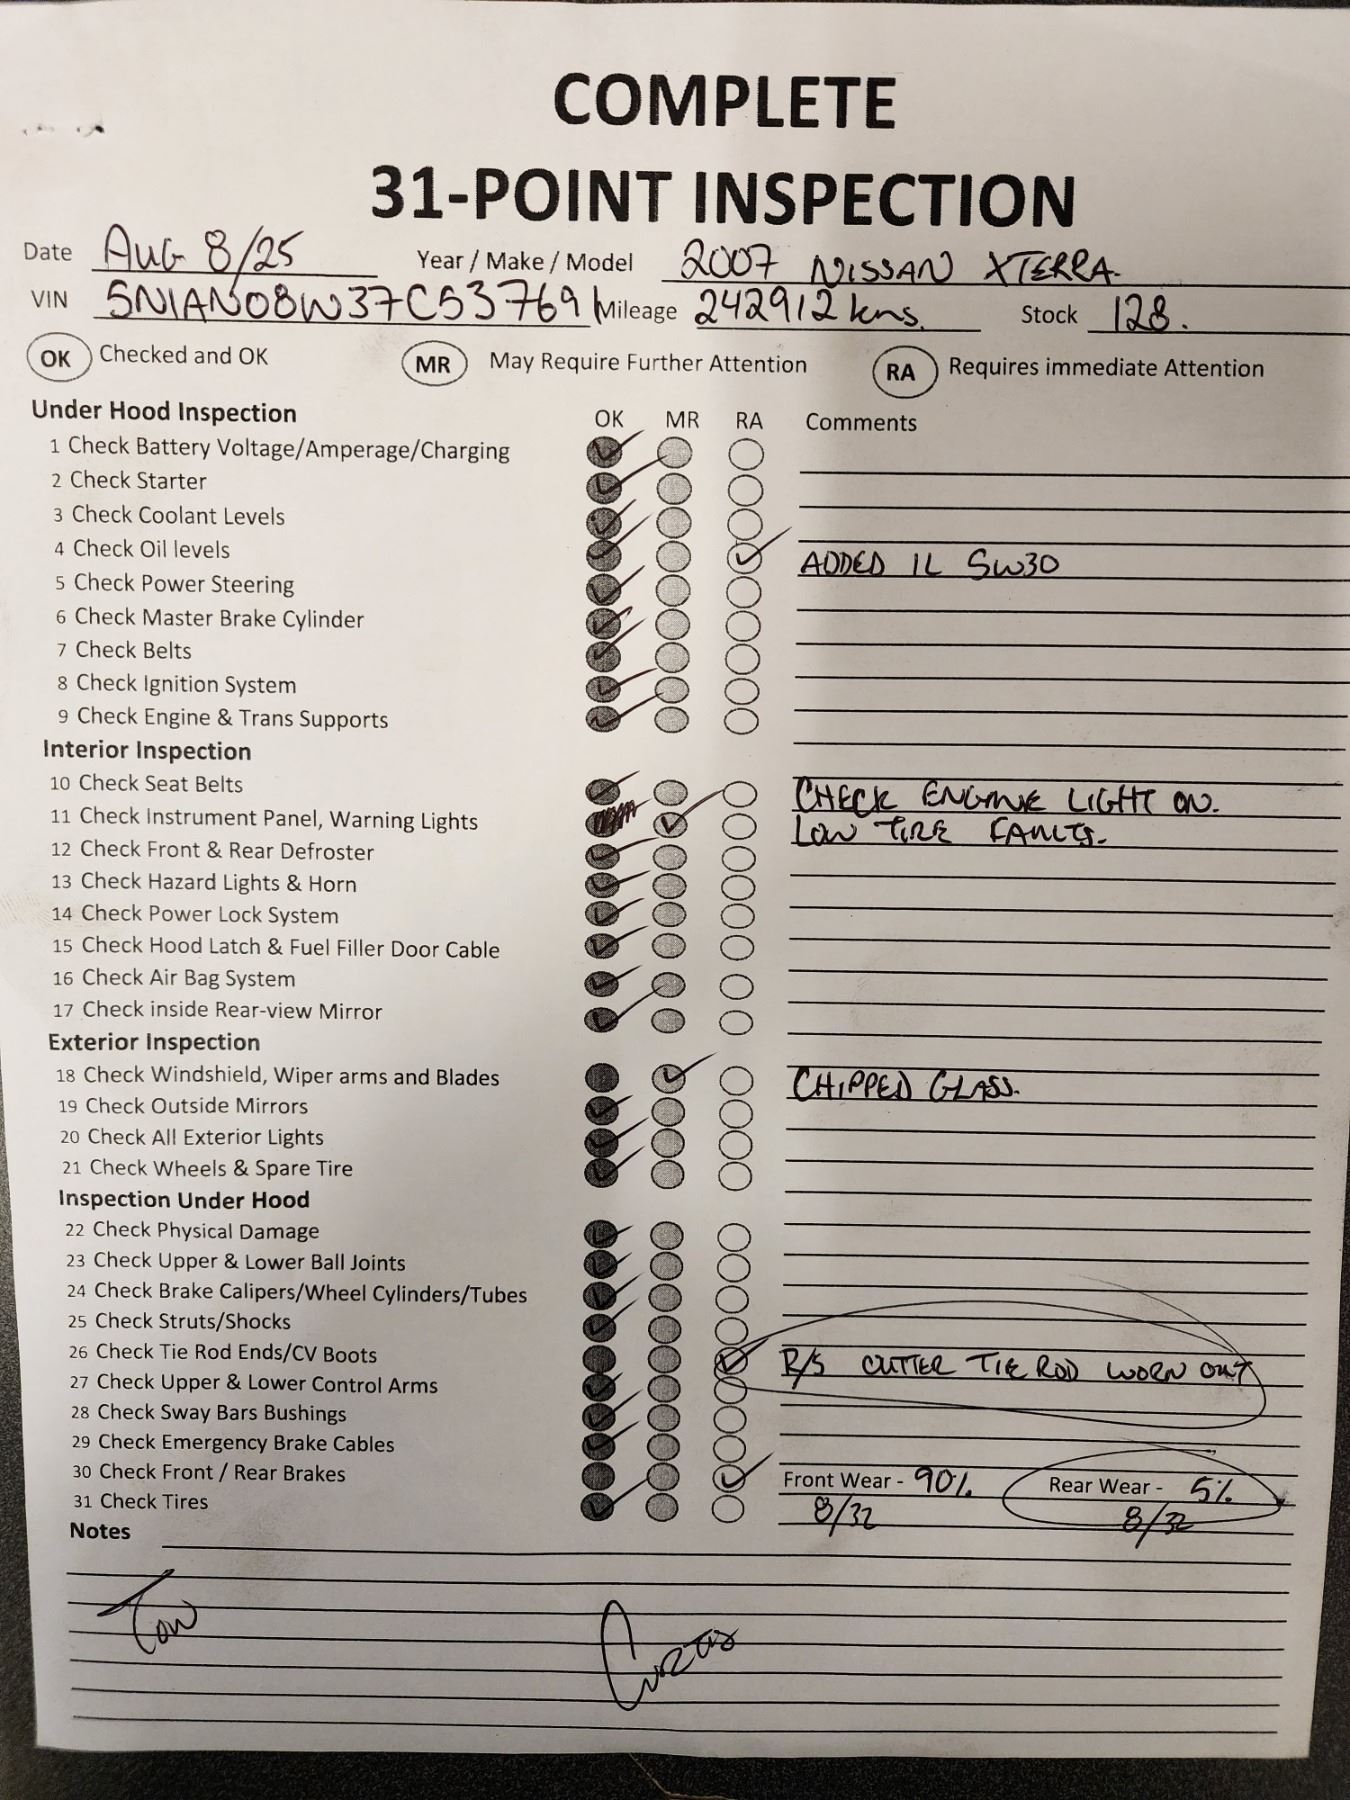 COMPLETE
31-POINT INSPECTION
Date AUG 8/25 Year / Make / Model 2007 NISSAN XTERRA.
VIN 5N1AN08W37C537691 Mileage 242912 kms. Stock 128.
OK Checked and OK MR May Require Further Attention RA Requires immediate Attention
Under Hood Inspection OK MR RA Comments
1 Check Battery Voltage/Amperage/Charging
2 Check Starter
3 Check Coolant Levels
4 Check Oil levels ADDED 1L 5W30
5 Check Power Steering
6 Check Master Brake Cylinder
7 Check Belts
8 Check Ignition System
9 Check Engine & Trans Supports
Interior Inspection
10 Check Seat Belts CHECK ENGINE LIGHT ON.
11 Check Instrument Panel, Warning Lights LOW TIRE FAULTS.
12 Check Front & Rear Defroster
13 Check Hazard Lights & Horn
14 Check Power Lock System
15 Check Hood Latch & Fuel Filler Door Cable
16 Check Air Bag System
17 Check inside Rear-view Mirror
Exterior Inspection
18 Check Windshield, Wiper arms and Blades CHIPPED GLASS.
19 Check Outside Mirrors
20 Check All Exterior Lights
21 Check Wheels & Spare Tire
Inspection Under Hood
22 Check Physical Damage
23 Check Upper & Lower Ball Joints
24 Check Brake Calipers/Wheel Cylinders/Tubes
25 Check Struts/Shocks
26 Check Tie Rod Ends/CV Boots R/S OUTTER TIE ROD WORN OUT
27 Check Upper & Lower Control Arms
28 Check Sway Bars Bushings
29 Check Emergency Brake Cables
30 Check Front / Rear Brakes Front Wear - 90% Rear Wear - 5%
31 Check Tires 8/32 8/32
Notes